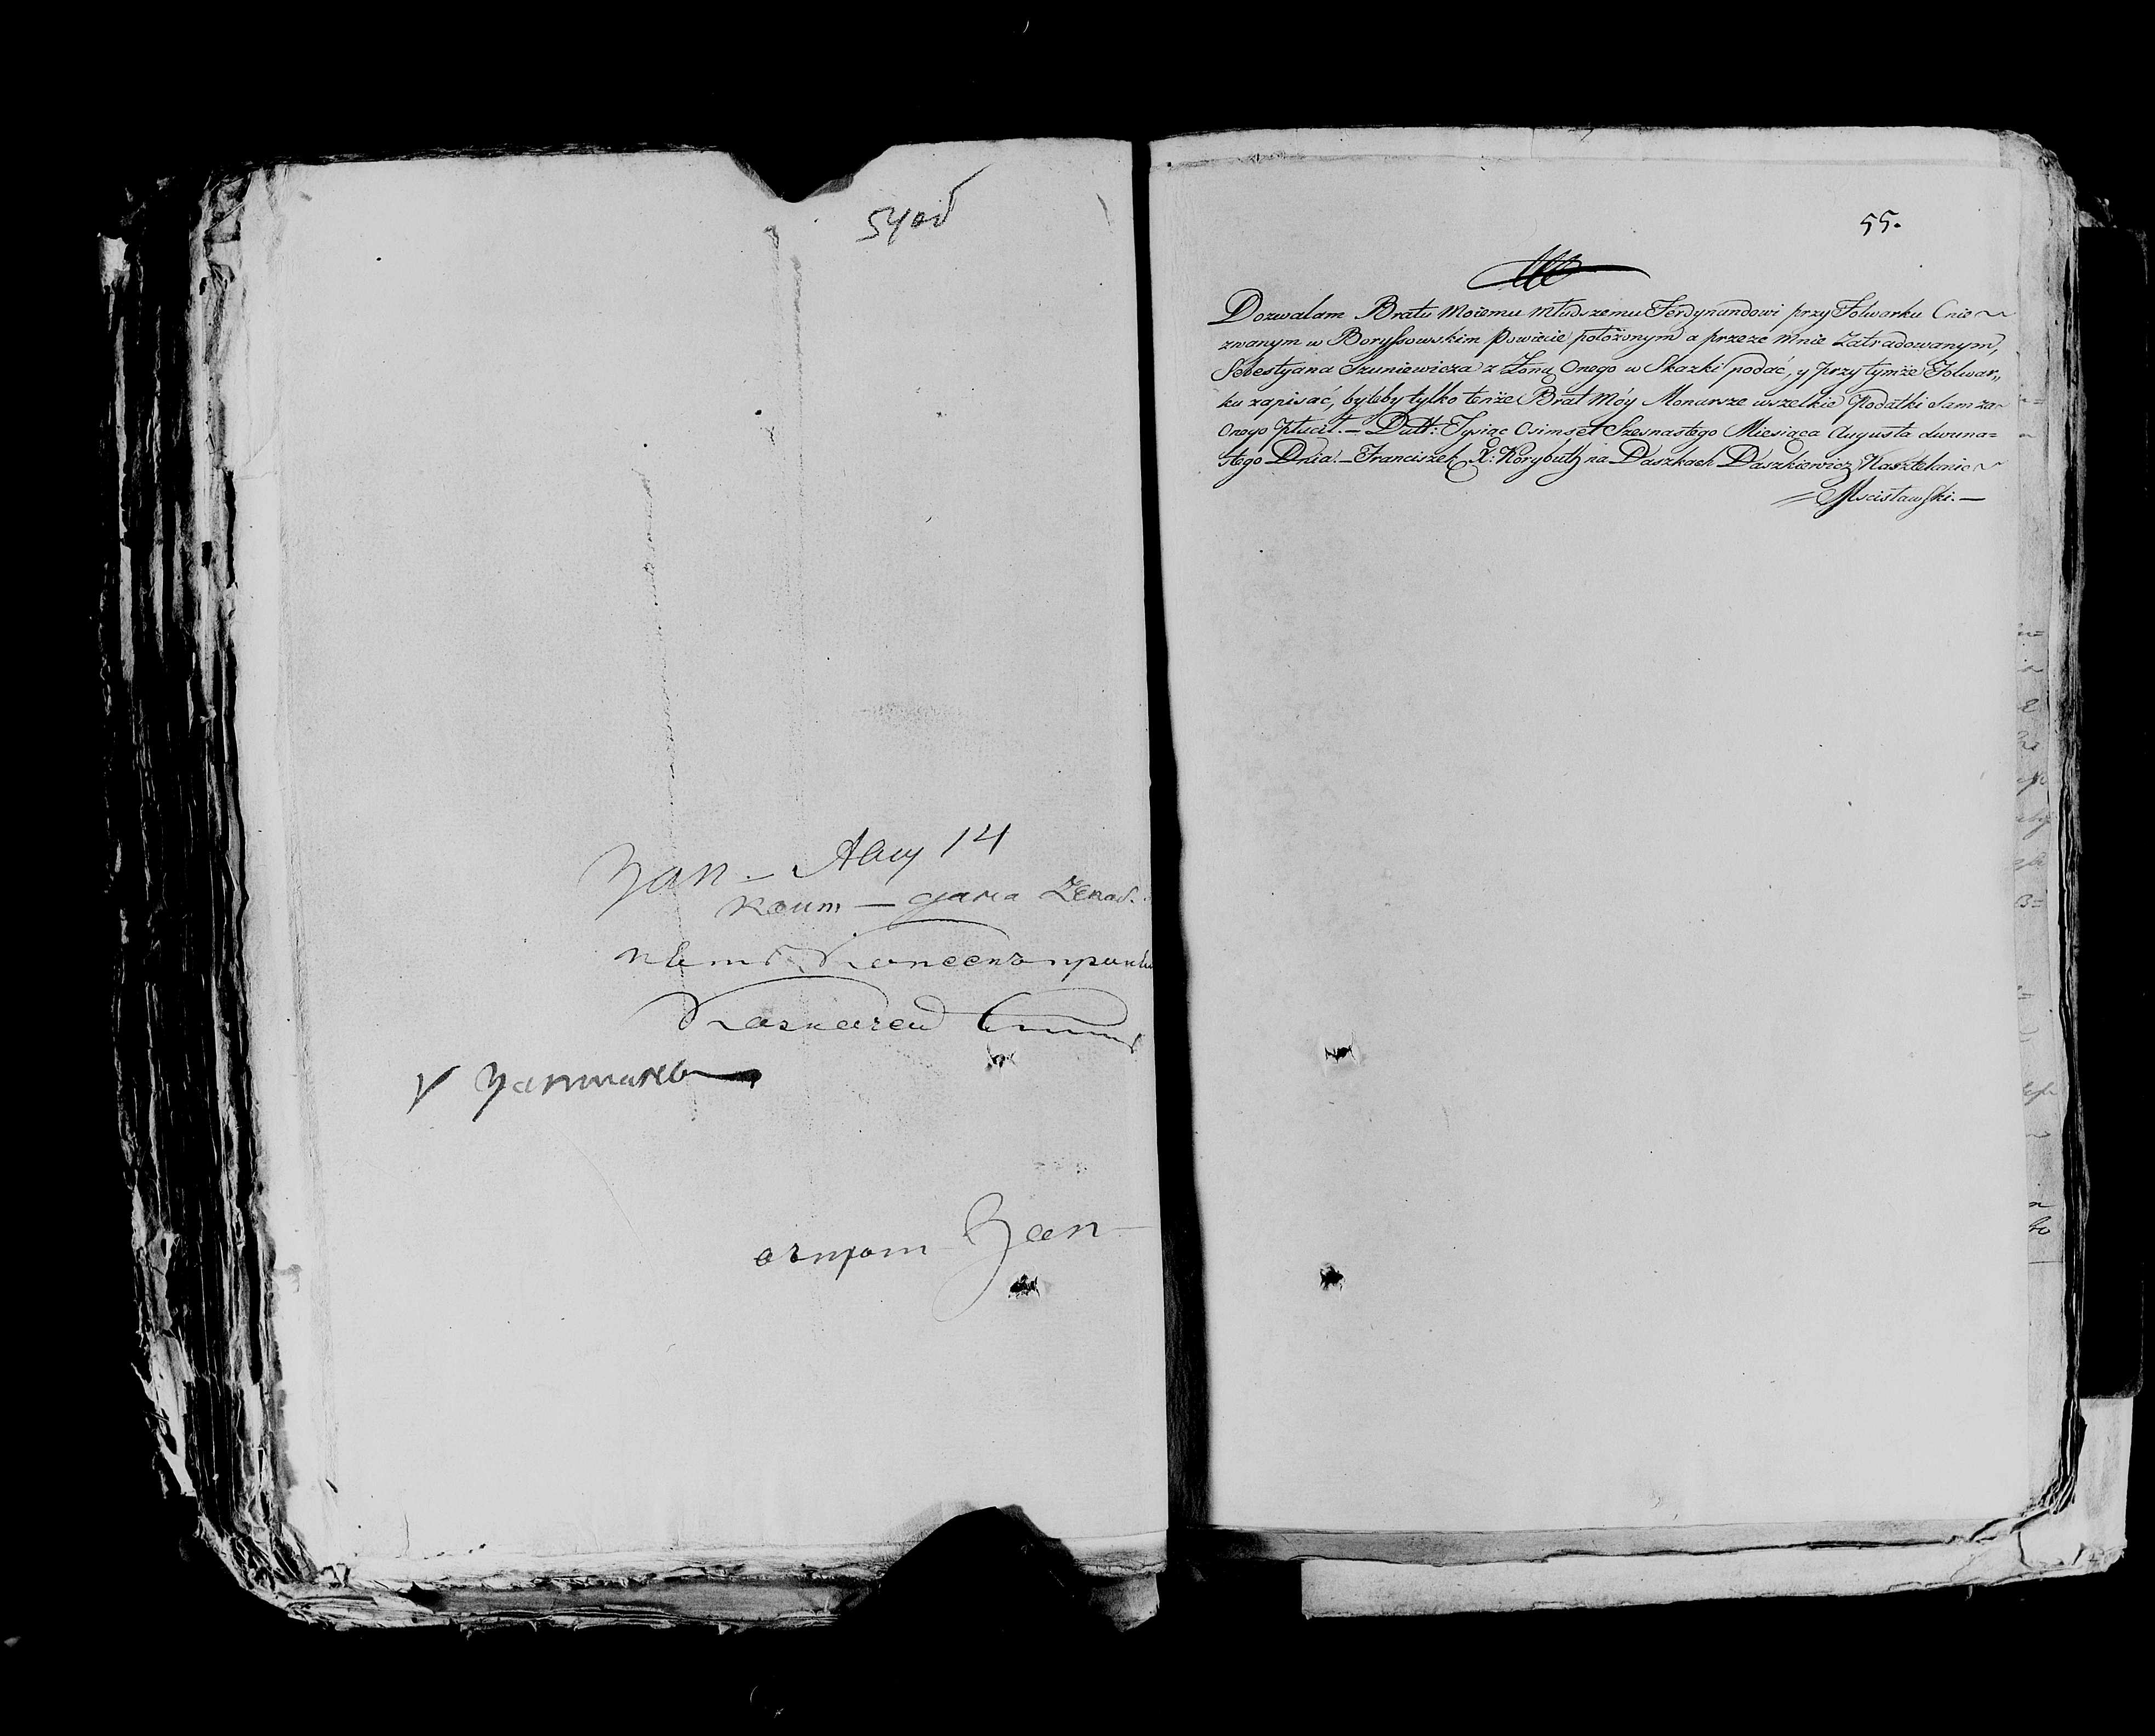 54об
Зап – Авгу 14
копеекъ
Казначей
V Записано
Зап
55.
Dozwalam Bratu Moiemu Młudszemu Ferdynandowi przy Folwarku Cnie
zwanym w Boryssowskim Powiecie położonym a przeze mnie Zatradowanym,
Sebestyana Szuniewicza z Żoną Onego w Skazki podać, y przy tymże Folwar„
ku zapisać, byleby tylko tenże Brat Móy Monarsze wszelkie Podatki Sam za
Onego Płacił. – Datt: Tysiąc Osimset Szesnastego Miesiąca Augusta dwuna=
stego Dnia. – Franciszek X: Korybuth na Daszkach Daszkiewicz Kasztelanic
= Mscisławski. –